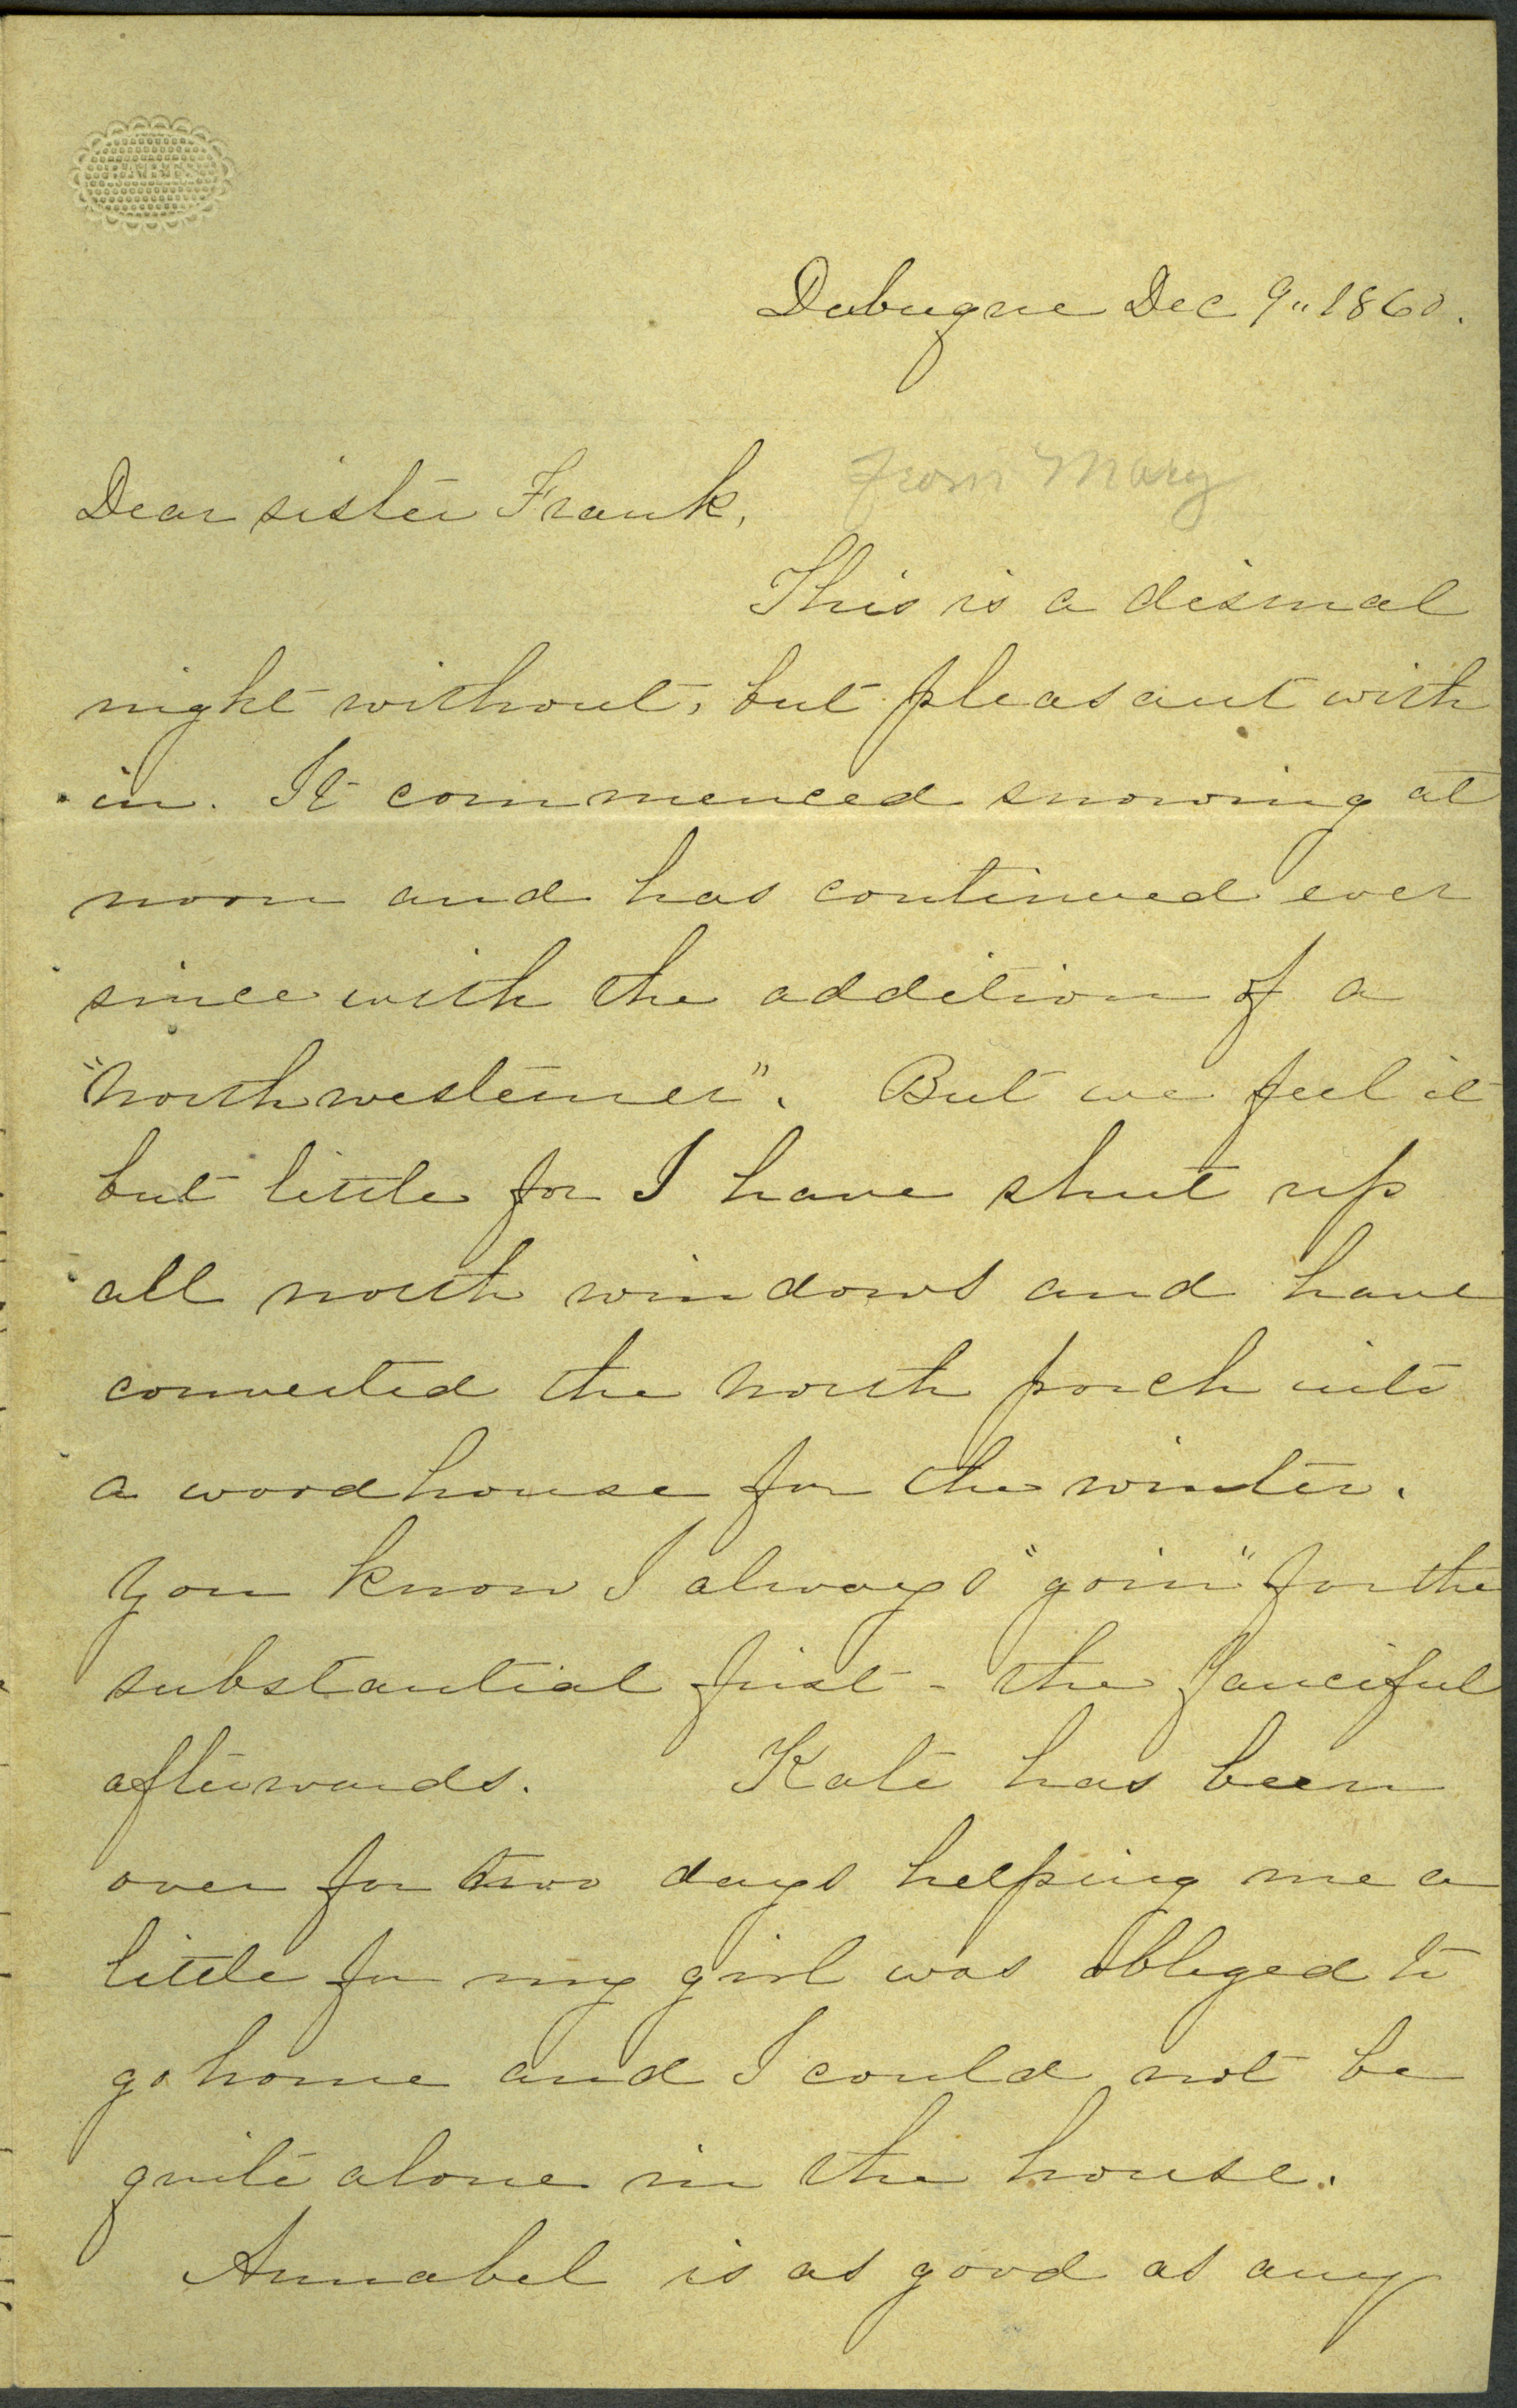 PARIS
Dubuque Dec 9" 1860.
From Mary
Dear sister Frank,
This is a dismal
night without, but pleasant with
in. It commenced snowing at
noon and has continued ever
since with the addition of a
"Northwesterner". But we feel it
but little for I have shut up
all north windows and have
converted the north porch into
a woodhouse for the winter.
You know I always "goin" for the
substantial first - the fanciful
afterwards. Kate has been
over for two days helping me a
little for my girl was obliged to
go home and I could not be
quite alone in the house.
Annabel is as good as any